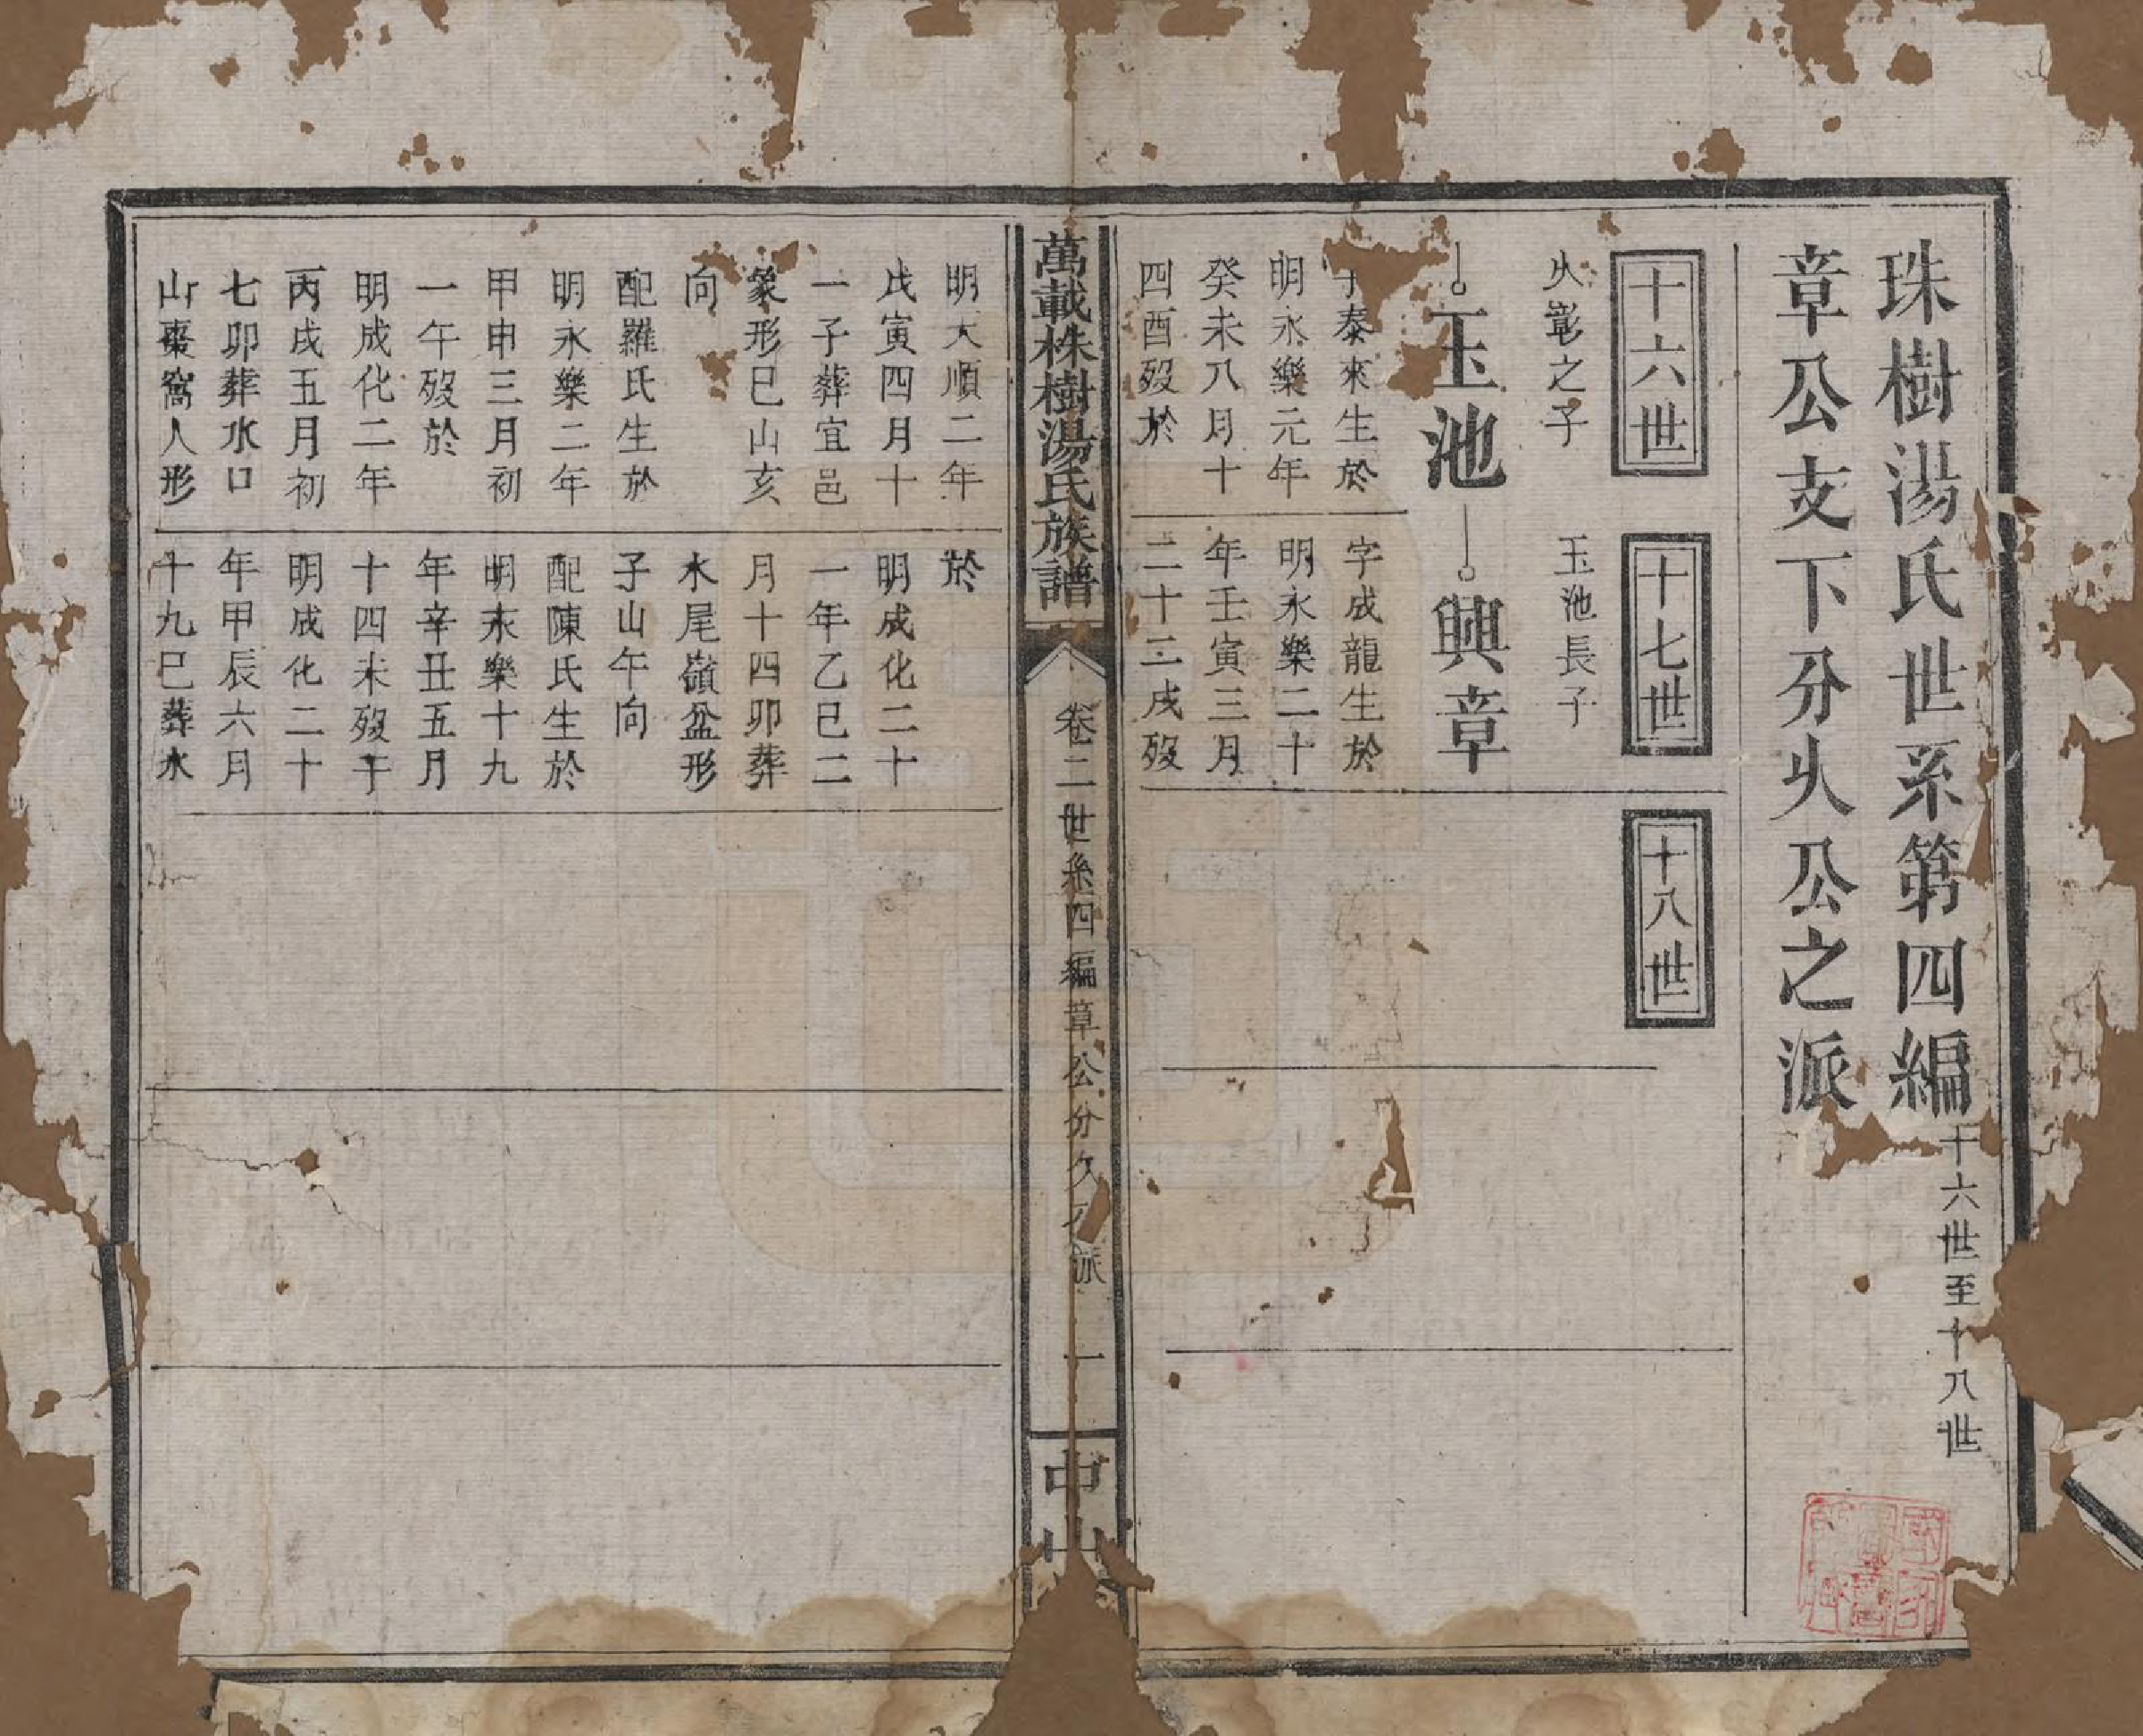 珠樹湯氏世系第四編 十六世至十八世
章公支下分乆公之派
十六世
十七世
十八世
乆彰之子
玉池長子
玉池
興章
泰來生於
明永樂元年
癸未八月十
四酉歿於
字成龍生於
明永樂二十
年壬寅三月
二十二戌歿
萬載株樹湯氏族譜
卷二世系四編章公分久
派
一
中山
明天順二年
戊寅四月十
一子葬宜邑
象形巳山亥
向
配羅氏生於
明永樂二年
甲申三月初
一午歿於
明成化二年
丙戌五月初
七卯葬水口
山棗窩人形
於
明成化二十
一年乙巳二
月十四卯葬
水尾嶺盆形
子山午向
配陳氏生於
明永樂十九
年辛丑五月
十四未歿于
明成化二十
年甲辰六月
十九巳葬水